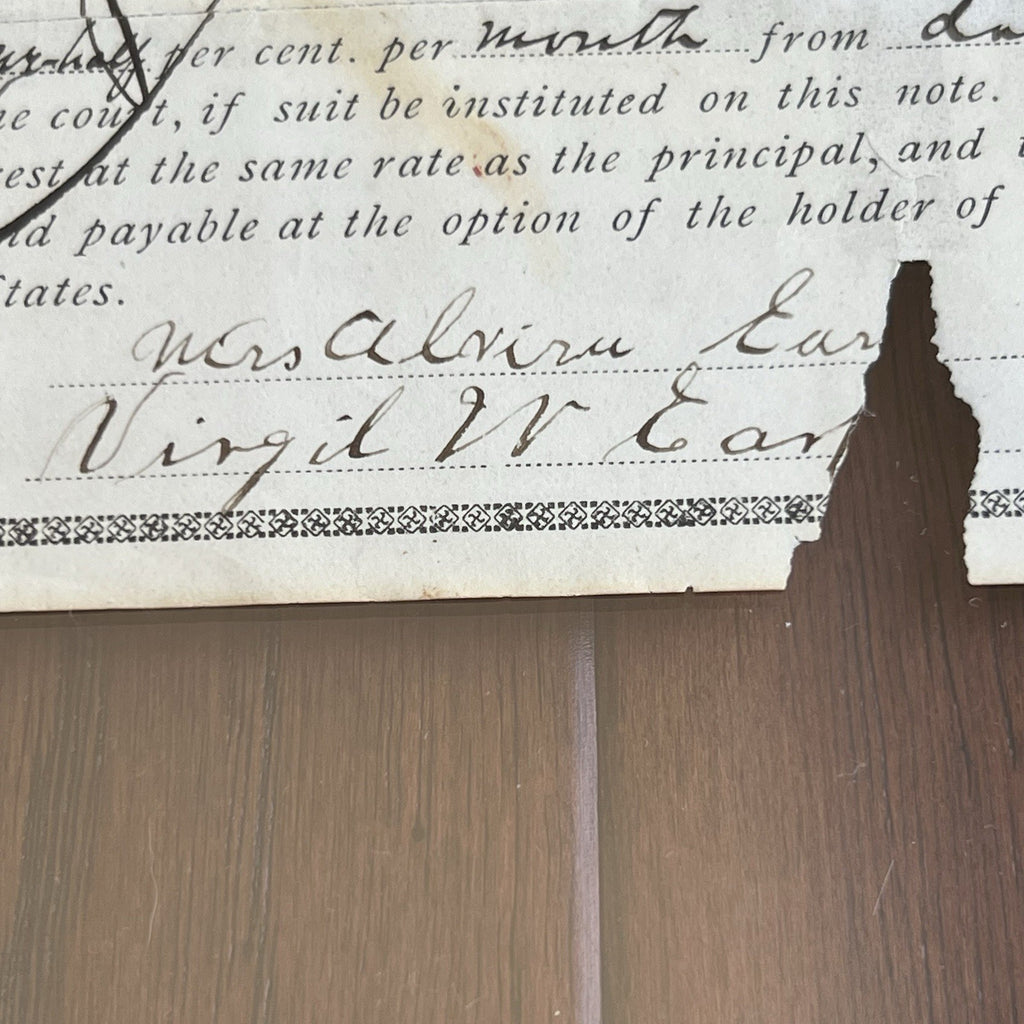 per cent. per month from
court, if suit be instituted on this note.
at the same rate as the principal, and
payable at the option of the holder of
States.
Mrs Alvira
Virgil W